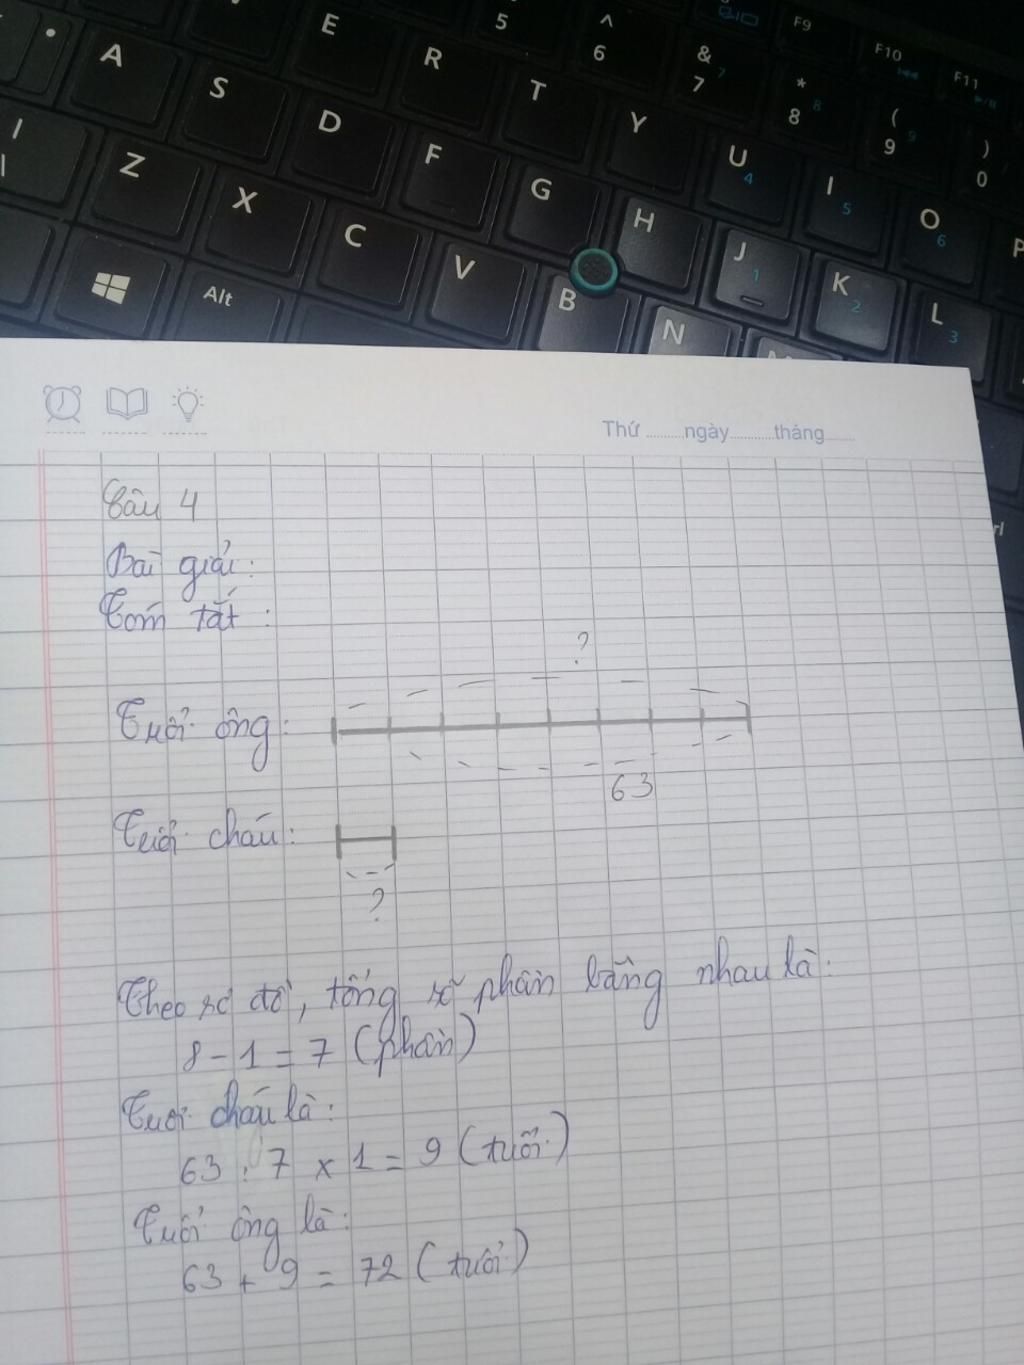 5
^
6
&
7 7
*
8 8
F9
F10
F11
(
9 9
)
0
E
R
T
Y
U
4
I
5
O
6
P
A
S
D
F
G
H
J
1
K
2
L
3
Z
X
C
V
B
N
M
Alt
Thứ ........ngày...........tháng........
Câu 4
Bài giải:
Tóm tắt:
?
Tuổi ông:
63
Tuổi cháu:
?
Theo sơ đồ, tổng số phần bằng nhau là:
8 - 1 = 7 (phần)
Tuổi cháu là:
63 : 7 x 1 = 9 (tuổi)
Tuổi ông là:
63 + 9 = 72 (tuổi)